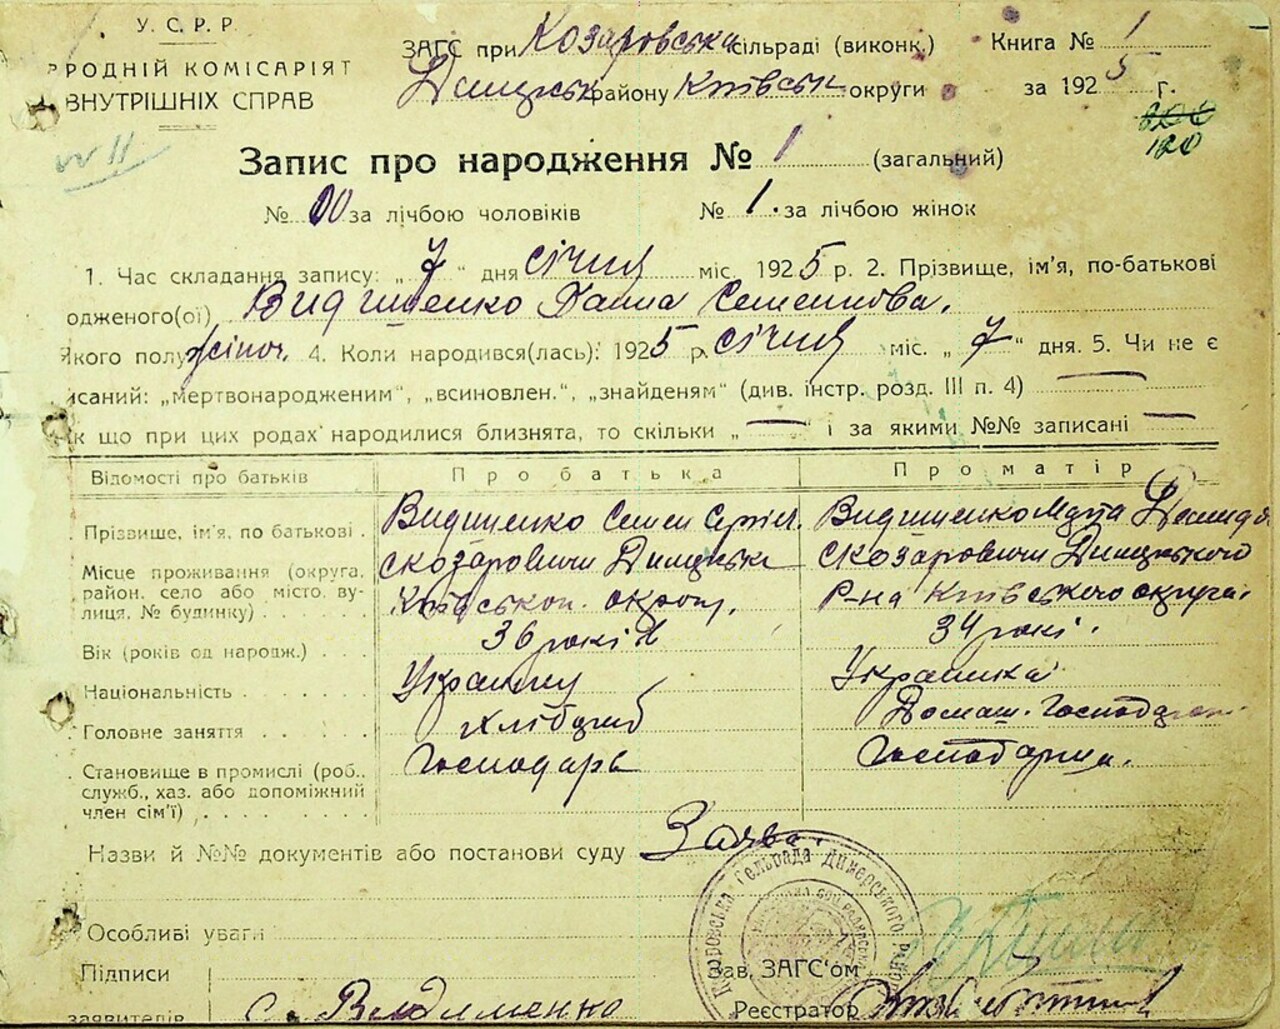 У. С. Р. Р.
РОДНІЙ КОМІСАРІЯТ
ВНУТРІШНІХ СПРАВ
ЗАГС при Козаровська сільраді (виконк.)
районy Київськ округи
Книга № 1
за 1925 г.
120
Запис про народження № 1 (загальний)
№ 00 за лічбою чоловіків № 1. за лічбою жінок
1. Час складання запису: „ 7 “ дня січня міс. 1925 р. 2. Прізвище, ім'я, по-батькові
одженого(ої) Ганна Семенова.
якого полу жіноч. 4. Коли народився(лась): 1925 р. січня міс. „ 7 “ дня. 5. Чи не є
исаний: „мертвонародженим“, „всиновлен.“, „знайденям“ (див. інстр. розд. III п. 4) —
як що при цих родах народилися близнята, то скільки „ — “ і за якими №№ записані —
Відомості про батьків Про батька Про матір
Прізвище, ім'я, по батькові . Семен
Місце проживання (округа, район, село або місто, вулиця, № будинку) . . . с Козаровичи с Козаровичи
окрог. Р-на Київського округа
Вік (років од народж.) . . . 36 років 34 рокі.
Національність . . . . . . Українец Українка
Головне заняття . . . . . Хлібороб Домаш.
Становище в промислі (роб., служб., хаз. або допоміжний член сім'ї) . . . . . . . . Господарь Господарка.
Назви й №№ документів або постанови суду Заява.
Особливі уваги
Підписи
заявителів
Зав. ЗАГС'ом
Реєстратор
Козаровська Сельрада Димерського